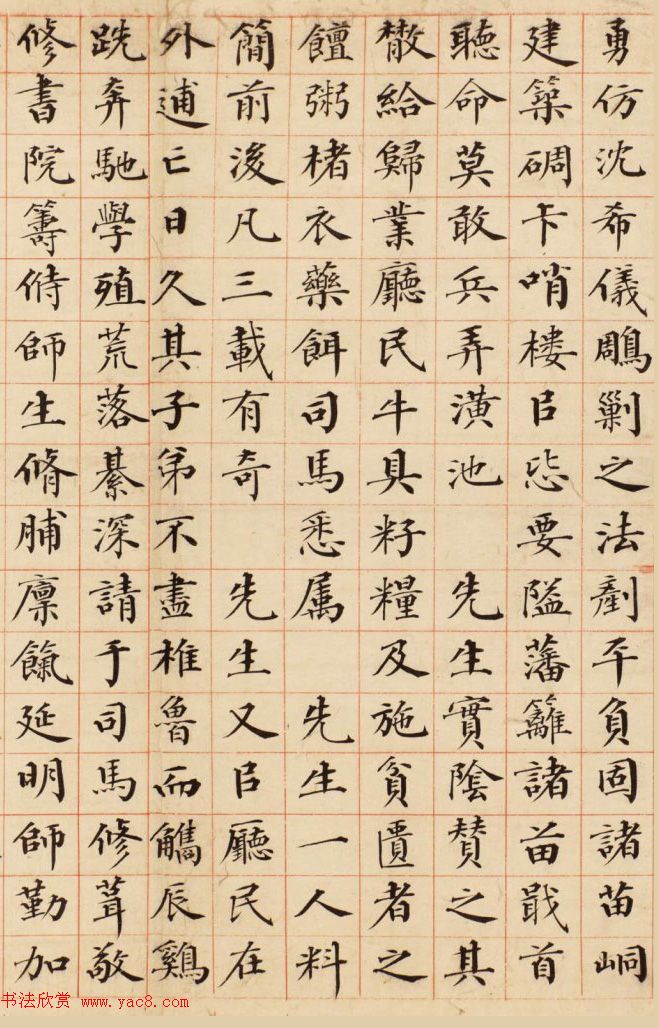 勇仿沈希儀鵰剿之法剷平負固諸苗峒
建築碉卡哨樓㠯毖要隘藩籬諸苗戢首
聽命莫敢兵弄潢池 先生實陰贊之其
散給歸業廳民牛具籽糧及施貧匱者之
饘粥楮衣藥餌司馬悉属 先生一人料
簡前後凡三載有奇 先生又㠯廳民在
外逋亡日久其子弟不盡椎魯而觿辰鷄
跣奔馳學殖荒落綦深請于司馬修葺敬
修書院籌偫師生脩脯廩餼延明師勤加
书法欣赏 www.yac8.com